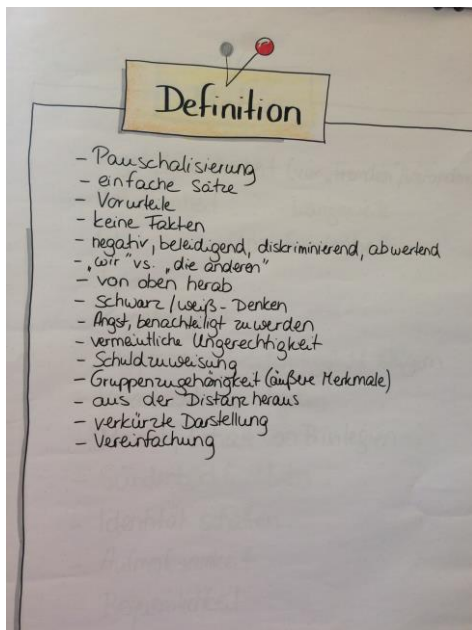 Definition
- Pauschalisierung
- einfache Sätze
- Vorurteile
- keine Fakten
- negativ, beleidigend, diskriminierend, abwertend
- „wir" vs. „die anderen"
- von oben herab
- Schwarz/weiß-Denken
- Angst, benachteiligt zu werden
- vermeintliche Ungerechtigkeit
- Schuldzuweisung
- Gruppenzugehörigkeit (äußere Merkmale)
- aus der Distanz heraus
- verkürzte Darstellung
- Vereinfachung